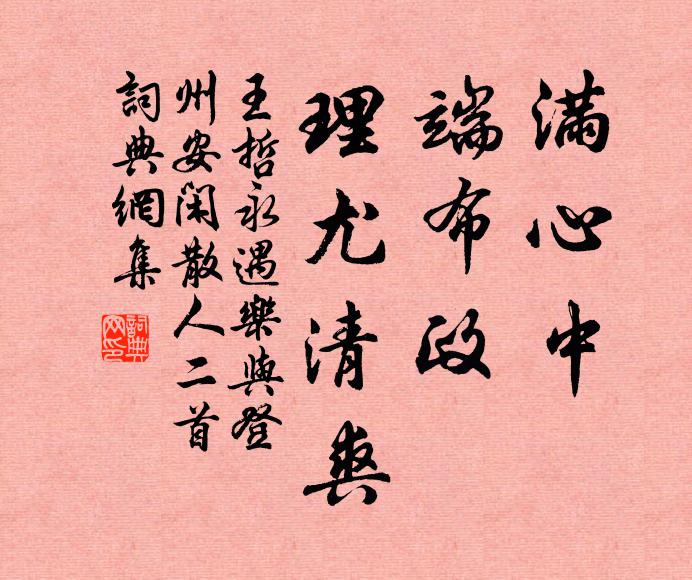 满心中
端布政
理尤清爽
王哲永遇樂與登
州安閑散人二首
詞典網集
詞典
网印